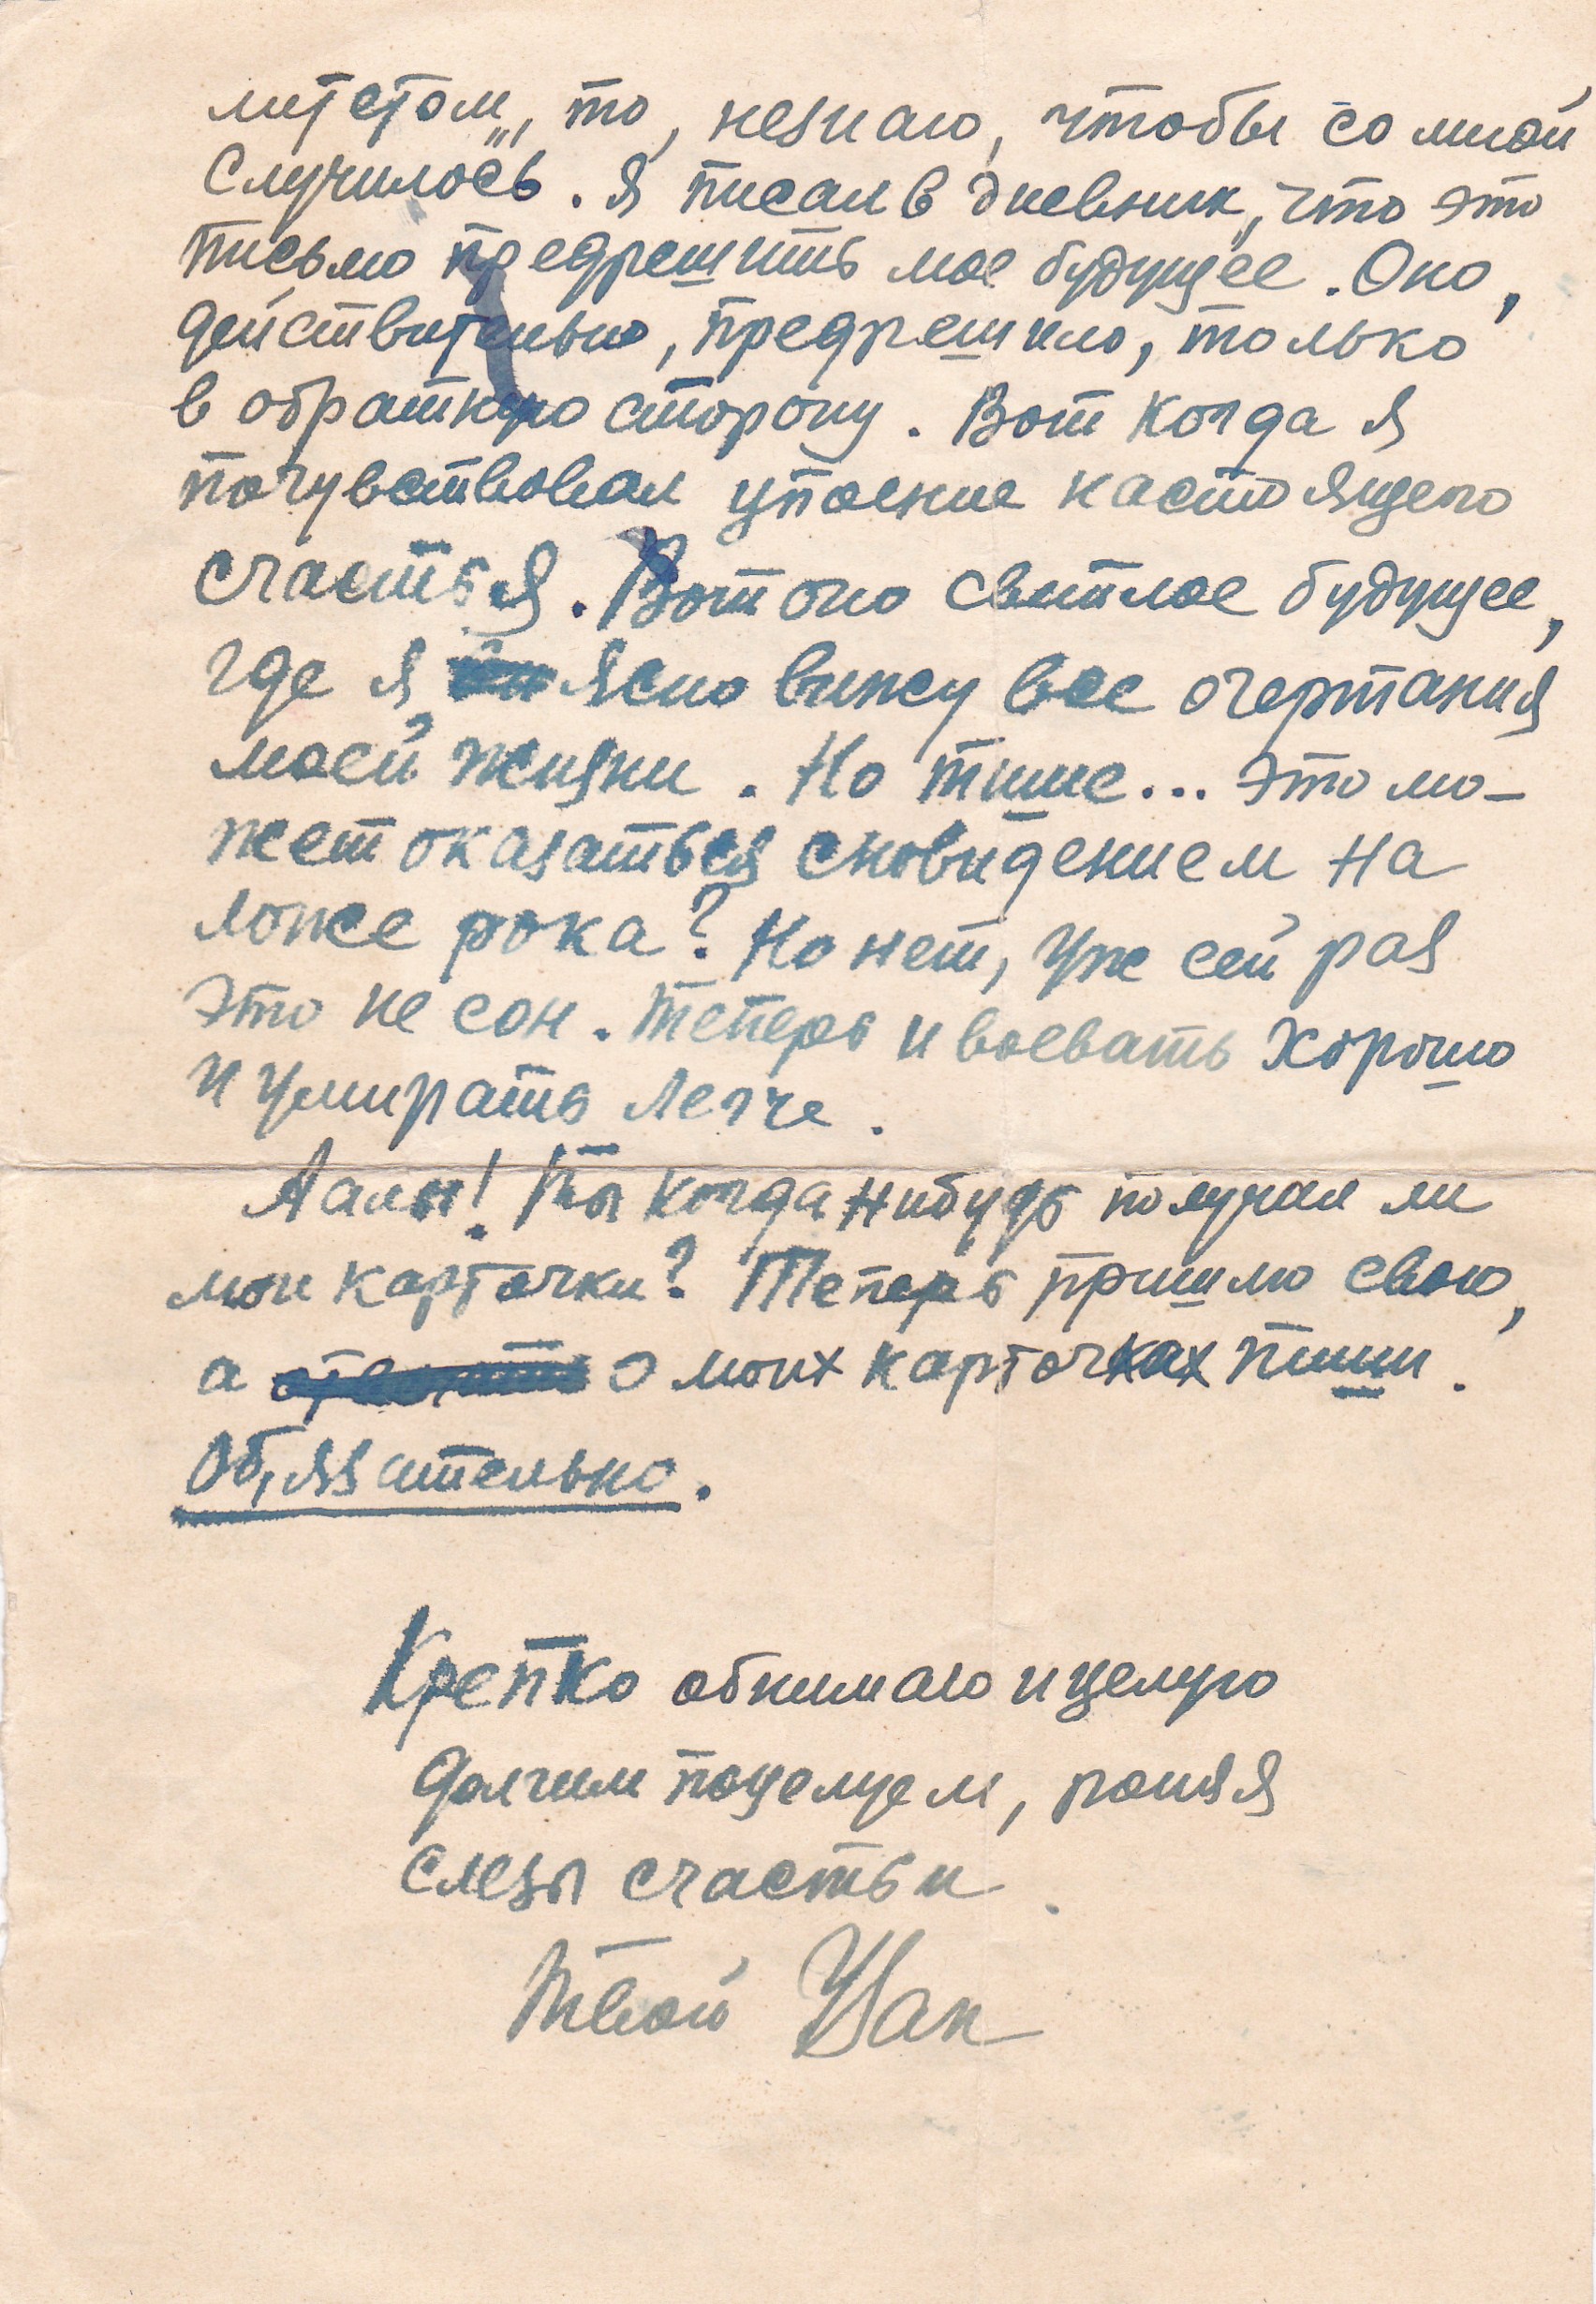 митетом", то, незнаю, чтобы со мной
случилось. Я писал в дневник, что это
письмо предрешить мое будущее. Оно,
действительно, предрешило, только
в обратную сторону. Вот когда я
почувствовал упоение настоящего
счастья. Вот оно светлое будущее,
где я ясно вижу все очертания
моей жизни. Но тише... Это мо-
жет оказаться сновидением на
ложе рока? Но нет, уж сей раз
это не сон. Теперь и воевать хорошо
и умирать легче.
Ты когда нибудь получал ли
мои карточки? Теперь пришлю свою,
а о моих карточках пиши.
Об,язательно.
Крепко обнимаю и целую
долгим поцелуем, роняя
слезы счастьи.
Твой